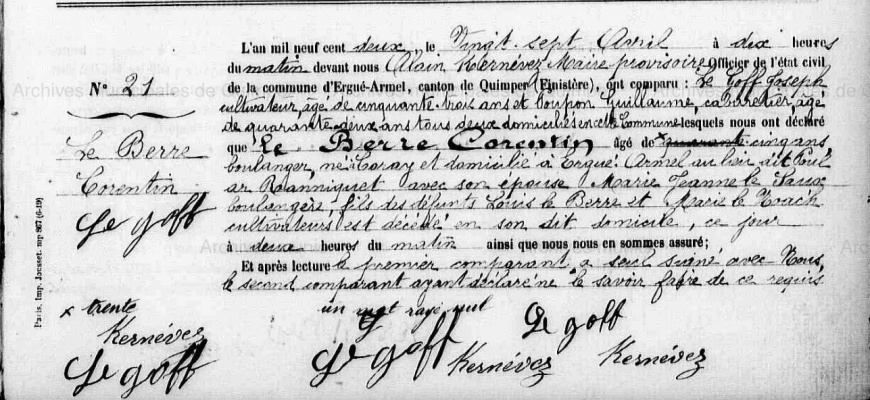 L'an mil neuf cent deux, le Vingt-sept Avril à dix heures
du matin devant nous Alain Kernévez Maire provisoire Officier de l'état civil
de la commune d'Ergué-Armel, canton de Quimper (Finistère), ont comparu : Le Goff Joseph,
cultivateur, âgé de cinquante trois ans et Coupon Guillaume, cabaretier, âgé
de quarante-deux ans tous deux domiciliés en cette Commune lesquels nous ont déclaré
que Le Berre Corentin âgé de x quarante cinq ans,
boulanger, né à Coray et domicilié à Ergué Armel au lieu dit Poul
ar Raanniquet avec son épouse Marie Jeanne le Saux
boulangère, fils des défunts Louis le Berre et Marie le Noach
cultivateurs est décédé en son dit domicile, ce jour
à deux heures du matin ainsi que nous nous en sommes assuré;
Et après lecture le premier comparant a seul signé avec Nous,
le second comparant ayant déclaré ne le savoir faire de ce requis
un mot rayé nul
N° 21
Le Berre
Corentin
Le goff
x trente
Kernévez
Le goff
Le goff
Kernévez
Le goff
Kernévez
Paris, Imp. Jousset. mp 867 (6-19)
Archives Municipales de